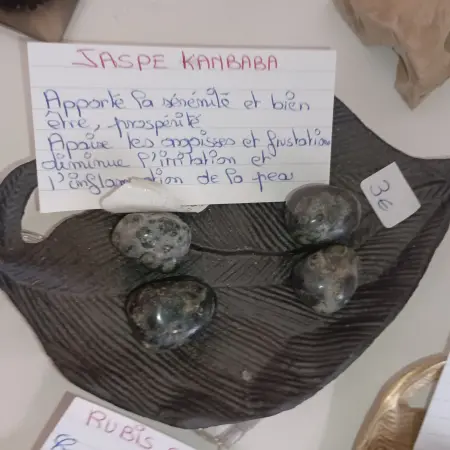 JASPE KANBABA
Apporte la sérénité et bien
être, prospérité
Apaise les angoisses et frustation
diminue l'irritation et
l'inflammation de la peau
3€
RUBIS